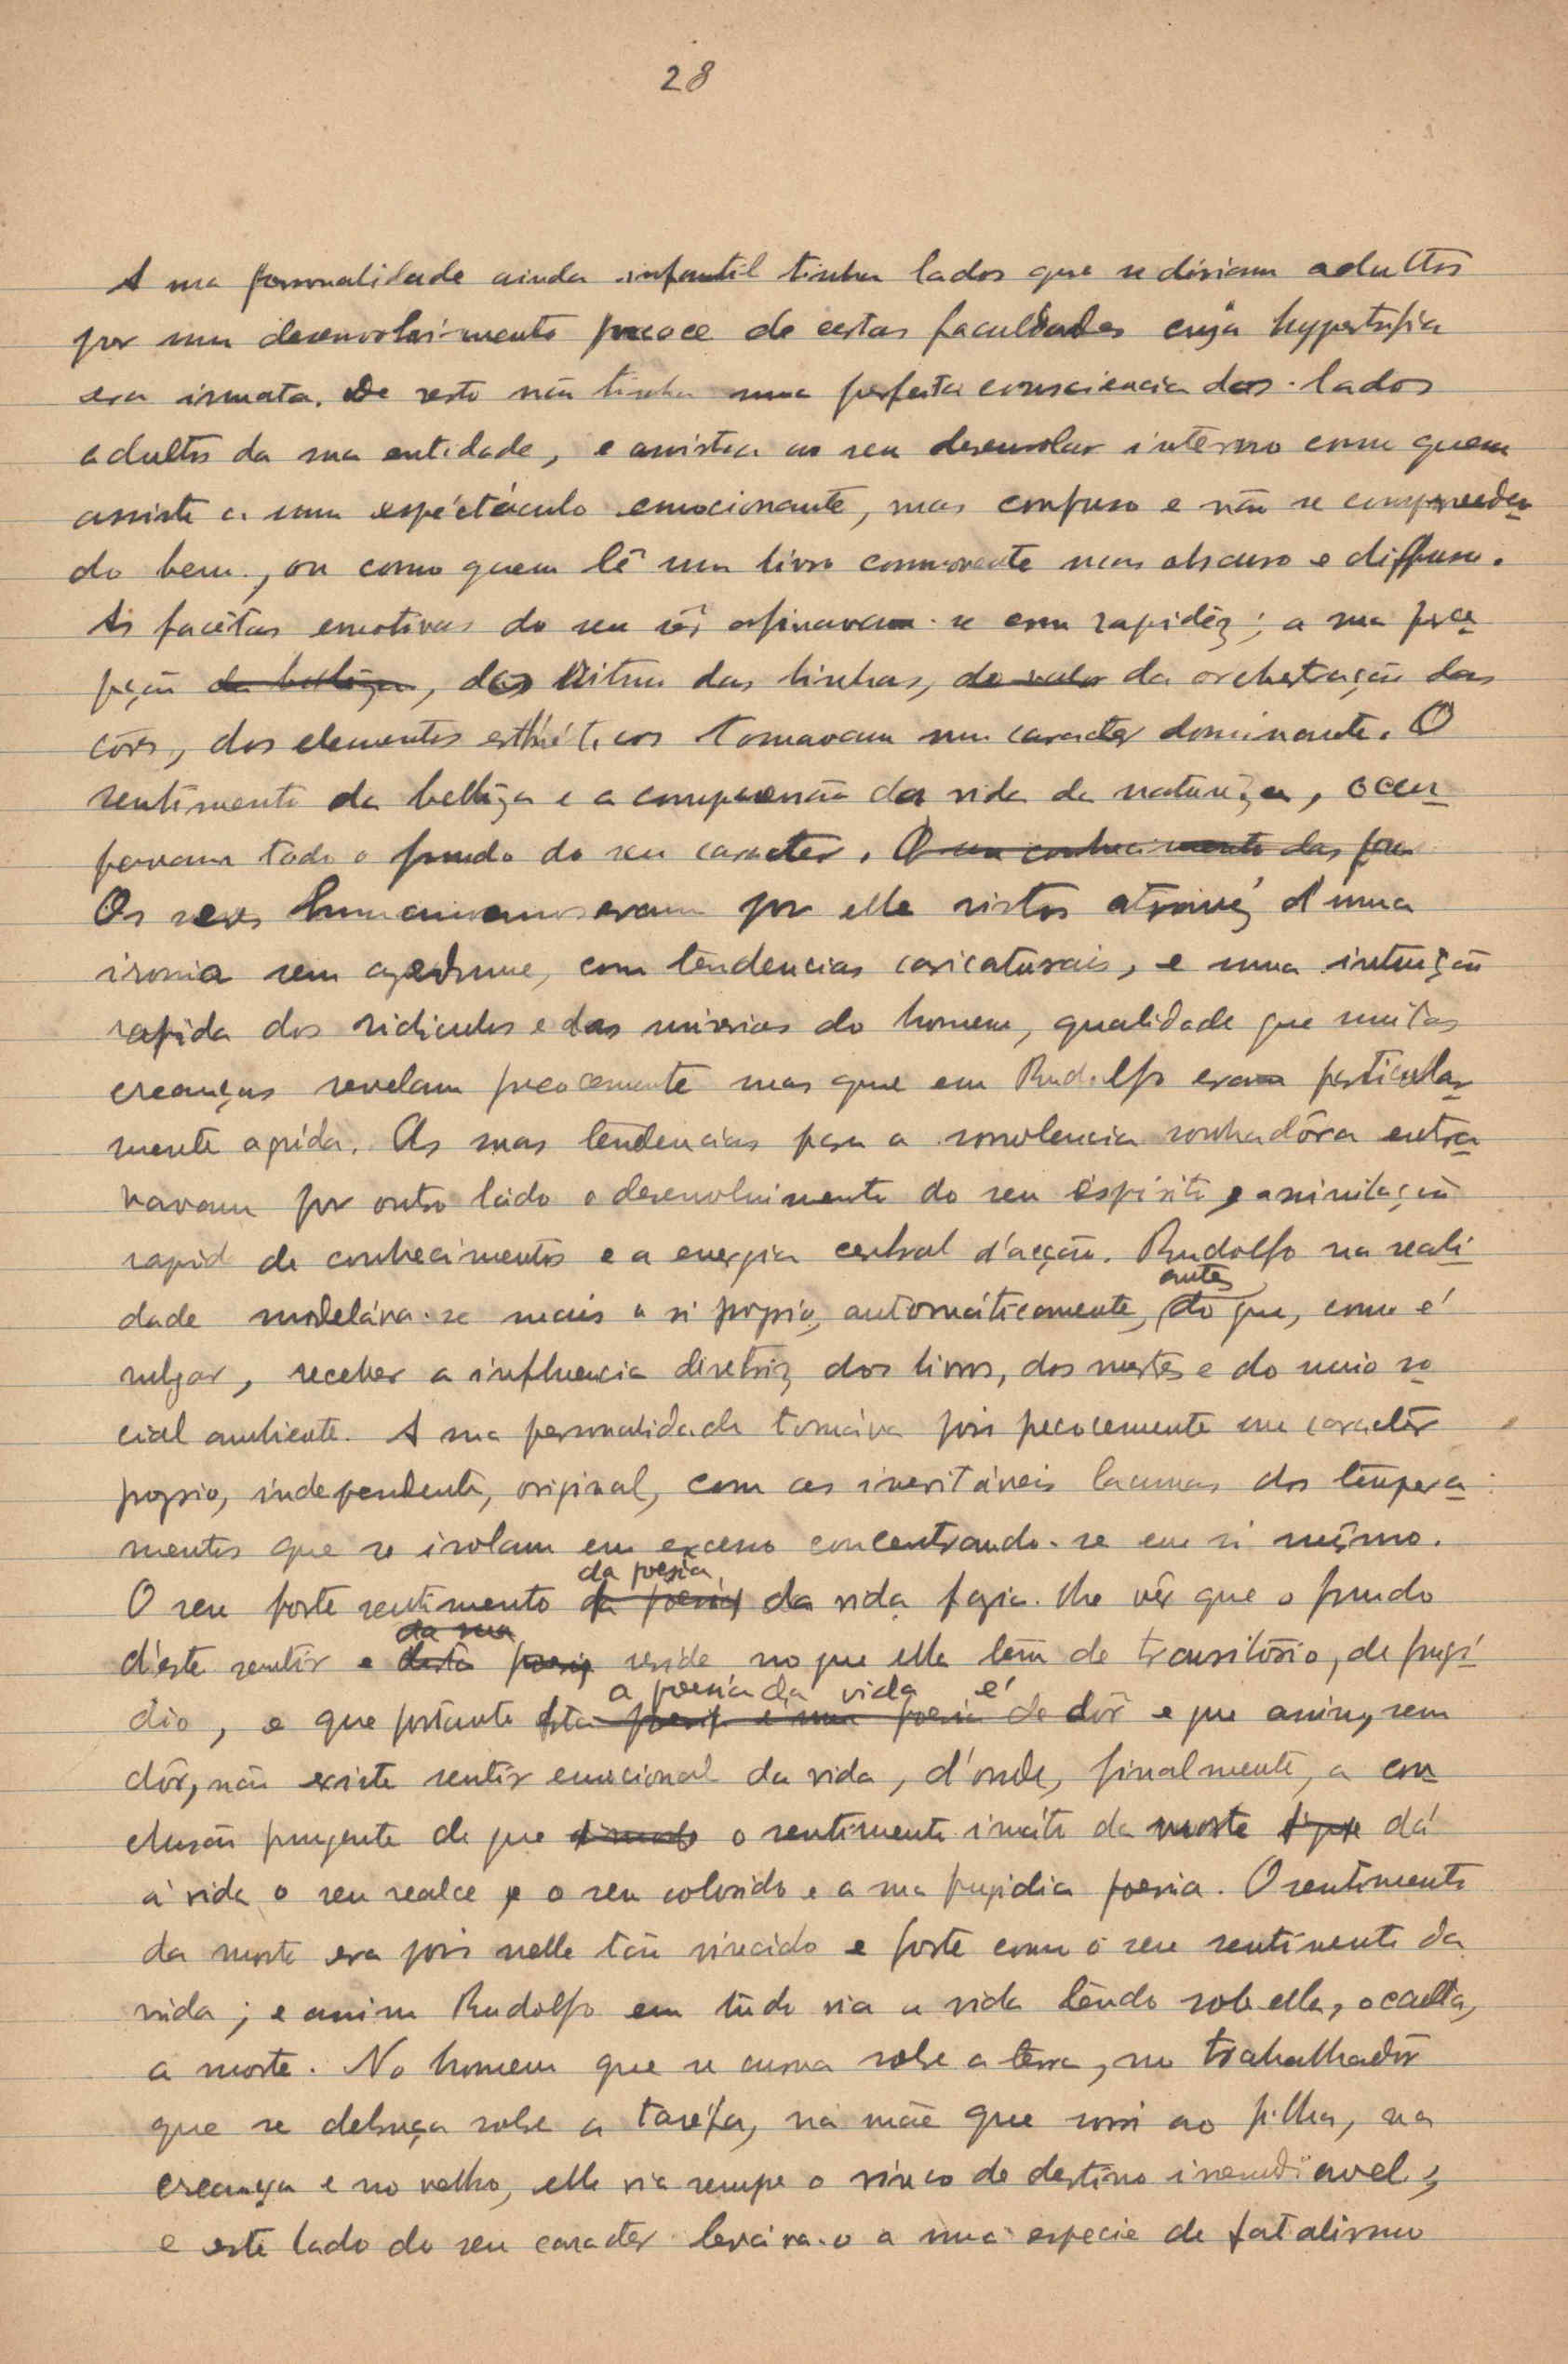 28
A sua personalidade ainda infantil tinha lados que se diriam adultos
por um desenvolvimento precoce de certas faculdades cuja hypertrofia
era innata. De resto não tinha uma perfeita consciencia dos lados
adultos da sua entidade, e assistia ao seu desenrolar interno como quem
assiste a um espéctáculo emocionante, mas confuso e não se comprehenden
do bem, ou como quem lê um livro commovente mas obscuro e diffuso.
As facêtas emotivas do seu sêr afinavam-se com rapidêz; a sua perce
pção da bellêza, do ritmo das linhas, do valor da orchestração das
côres, dos elementos esthéticos tomavam um caracter dominante. O
sentimento da bellêza e a comprensão da vida da naturêza, occu
pavam todo o fundo do seu caracter. O seu conhecimento das
Os seres humanos eram por elle vistos atravéz d'uma
ironia sem azedume, com tendencias caricaturais, e uma intuição
rapida dos ridiculos e das miserias do homem, qualidade que muitas
creanças revelam precocemente mas que em Rudolfo era particular
mente aguda. As suas tendencias para a sonolencia sonhadôra entra
vavam por outro lado o desenvolvimento do seu espirito, a assimilação
rapid de conhecimentos e a energia central d'acção. Rudolfo na reali
antes
dade modeláva-se mais a si proprio, automáticamente, do que, como é
vulgar, receber a influencia diretriz dos livros, dos mestres e do meio so
cial ambiente. A sua personalidade tomáva pois precocemente um caractér
proprio, independente, original, com as inevitáveis lacunas dos tempera
mentos que se isolam em excesso concentrando-se em si mesmo.
da poesia,
O seu forte sentimento da poesia da vida fazia-lhe vêr que o fundo
da sua
d'este sentir e desta poesia reside no que elle têm de transitório, de fugí
a poesia da vida é
dio, e que portanto esta poesia é uma poesia de dôr e que assim, sem
dôr, não existe sentir emocional da vida, d'onde, finalmente, a con
clusão pungente de que o sentimento innáto da morte dá
á vida o seu realce e o seu colorido e a sua fugidia poesia. O sentimento
da morte era pois nelle tão vincado e forte como o seu sentimento da
vida; e assim Rudolfo em tudo via a vida tendo sob ella, occulta,
a morte. No homem que se curva sobre a terra, no trabalhadôr
que se debruça sobre a taréfa, na mãe que sorri ao filho, na
creança e no velho, elle via sempre o vinco do destino irremediavel;
e este lado do seu caracter levava-o a uma especie de fatalismo